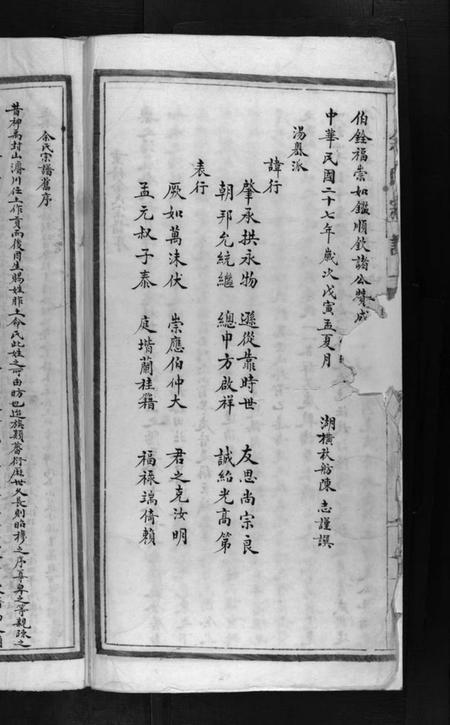 伯銓福崇如鑑順欽諸公贊成
中華民國二十七年歲次戊寅孟夏月 湖橫秋舫陳志謹譔
湯磊派
諱行
肇承拱永物 遜從靠時世 友思尚宗良
朝邦允統繼 總申方啟祥 誠紹光高第
表行
厥如萬洙伏 崇應伯仲大 君之克汝明
孟元叔子泰 庭堦蘭桂籍 福祿鴻倚賴
余氏宗譜舊序
昔柳為封山濬川任土作貢而後因生賜姓胙土命氏此姓之所由昉也迨族類蕃衍歷世久長則昭穆之序尊卑之等親疎之